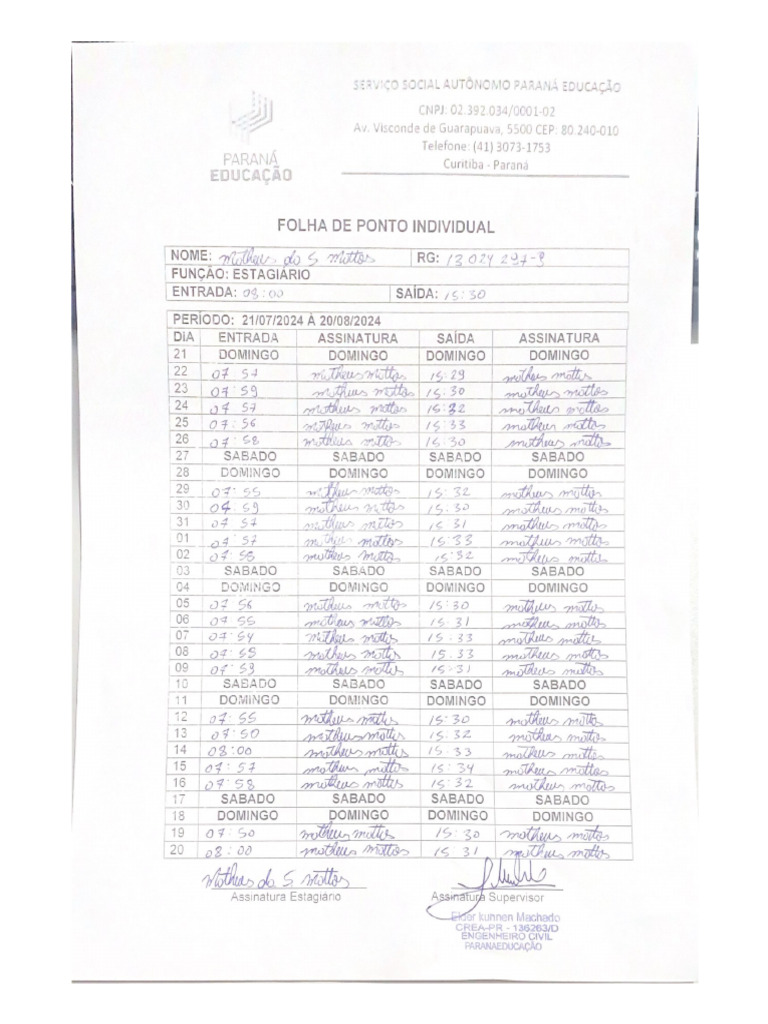 SERVIÇO SOCIAL AUTÔNOMO PARANÁ EDUCAÇÃO
CNPJ: 02.392.034/0001-02
Av. Visconde de Guarapuava, 5500 CEP: 80.240-010
Telefone: (41) 3073-1753
Curitiba - Paraná
PARANÁ
EDUCAÇÃO
FOLHA DE PONTO INDIVIDUAL
NOME: Matheus do S. Mattos RG: 13 024 297-9
FUNÇÃO: ESTAGIÁRIO
ENTRADA: 08:00 SAÍDA: 15:30
PERÍODO: 21/07/2024 À 20/08/2024
DIA ENTRADA ASSINATURA SAÍDA ASSINATURA
21 DOMINGO DOMINGO DOMINGO DOMINGO
22 07:57 matheus mattos 15:29 matheus mattos
23 07:59 matheus mattos 15:30 matheus mattos
24 07:57 matheus mattos 15:32 matheus mattos
25 07:56 matheus mattos 15:33 matheus mattos
26 07:58 matheus mattos 15:30 matheus mattos
27 SABADO SABADO SABADO SABADO
28 DOMINGO DOMINGO DOMINGO DOMINGO
29 07:55 matheus mattos 15:32 matheus mattos
30 07:59 matheus mattos 15:30 matheus mattos
31 07:57 matheus mattos 15:31 matheus mattos
01 07:57 matheus mattos 15:33 matheus mattos
02 07:58 matheus mattos 15:32 matheus mattos
03 SABADO SABADO SABADO SABADO
04 DOMINGO DOMINGO DOMINGO DOMINGO
05 07:56 matheus mattos 15:30 matheus mattos
06 07:55 matheus mattos 15:31 matheus mattos
07 07:54 matheus mattos 15:33 matheus mattos
08 07:55 matheus mattos 15:33 matheus mattos
09 07:59 matheus mattos 15:31 matheus mattos
10 SABADO SABADO SABADO SABADO
11 DOMINGO DOMINGO DOMINGO DOMINGO
12 07:55 matheus mattos 15:30 matheus mattos
13 07:50 matheus mattos 15:32 matheus mattos
14 08:00 matheus mattos 15:33 matheus mattos
15 07:57 matheus mattos 15:34 matheus mattos
16 07:58 matheus mattos 15:32 matheus mattos
17 SABADO SABADO SABADO SABADO
18 DOMINGO DOMINGO DOMINGO DOMINGO
19 07:50 matheus mattos 15:30 matheus mattos
20 08:00 matheus mattos 15:31 matheus mattos
Matheus do S. Mattos
Assinatura Estagiário Assinatura Supervisor
Elder kuhnen Machado
CREA-PR - 136263/D
ENGENHEIRO CIVIL
PARANAEDUCAÇÃO